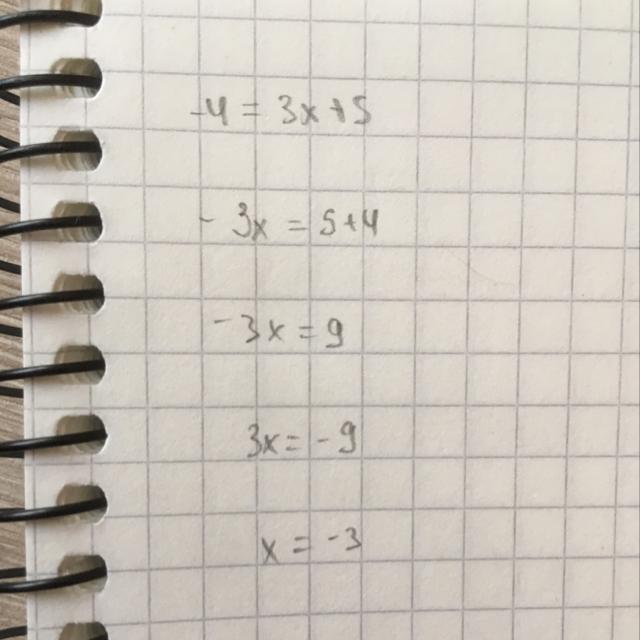 -4 = 3x+5
-3x = 5+4
-3x = 9
3x = -9
x = -3